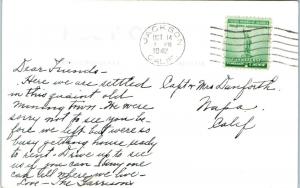 JACKSON
OCT 14
PM
1942
CALIF.
Dear Friends –
Here we are settled
in this quaint old
mining town – We were
sorry not to see you be-
fore we left but were so
busy getting house ready
to rent. Drive up to see
us if you can – Any one
can tell where we live –
Love – The Garrisons
Capt & Mrs Danforth
Napa
Calif